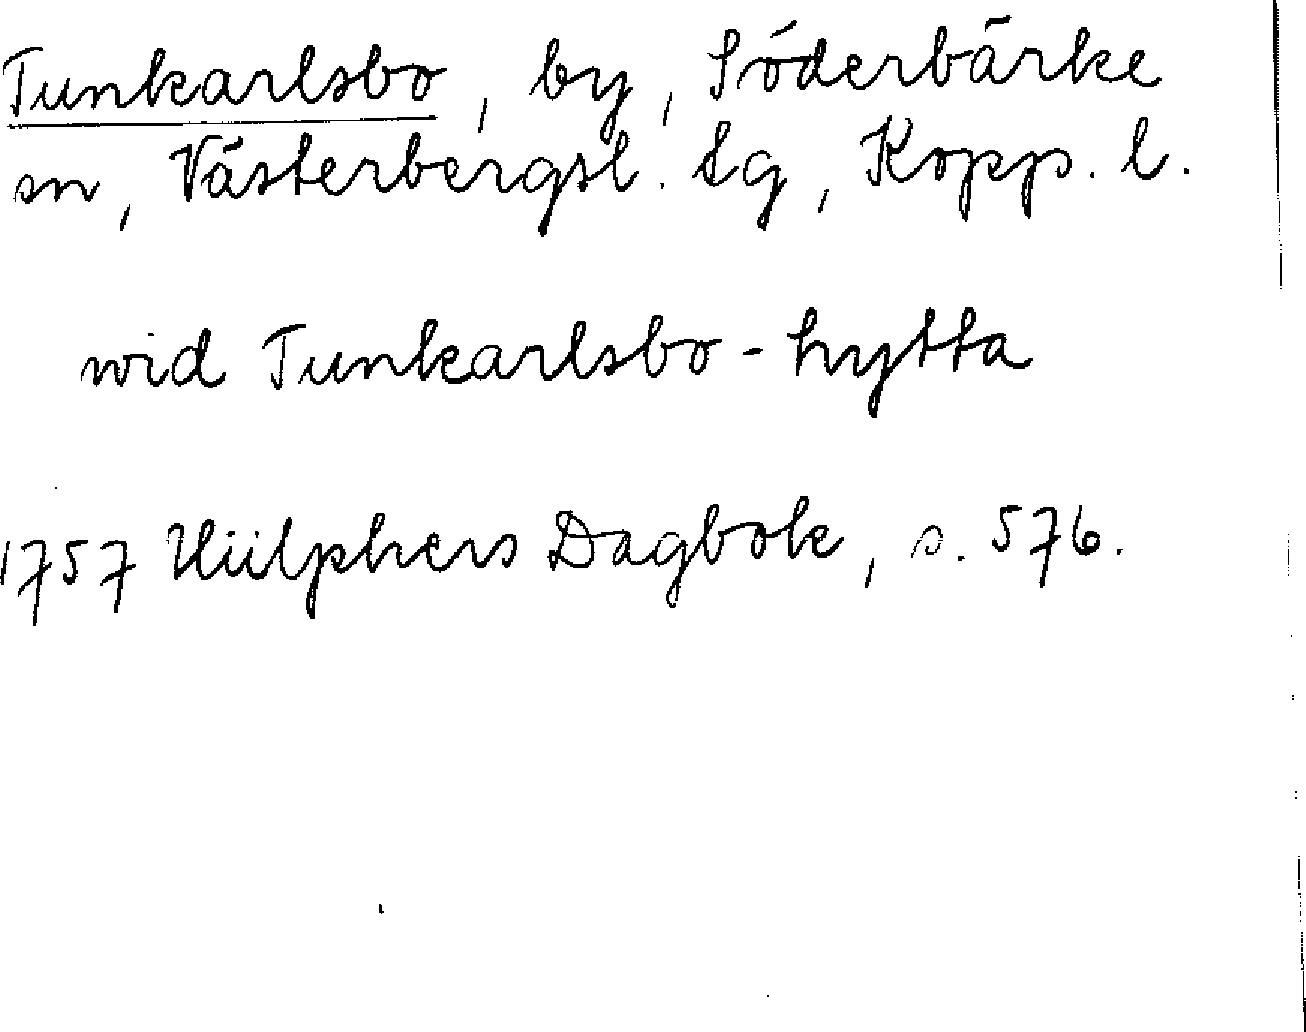 Tunkarlsbo, by, Söderbärke
sn, Västerbergsl. tg, Kopp. l.
wid Tunkarlsbo-hytta
1757 Hülphers Dagbok, s. 576.